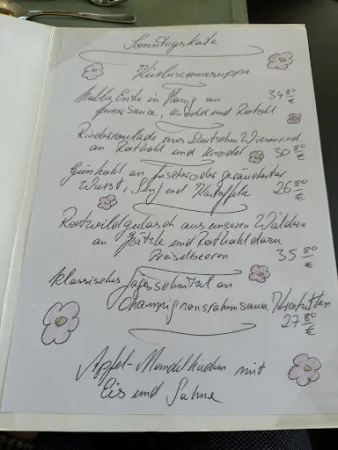 Sonntagskarte
Halbe Ente in Honig an
Sauce, Knödel und Rotkohl
34⁸⁰ €
Rinderroulade aus Deutschem Weiderind
an Rotkohl und Knödel 30⁸⁰ €
Grünkohl an frischer oder geräucherter
Wurst, Senf und Kartoffeln 26⁸⁰ €
Rotwildgulasch aus unseren Wäldern
an Spätzle und Rotkohl dazu
Preiselbeeren 35⁸⁰ €
klassisches Jägerschnitzel an
Champignonrahmsauce, Kroketten
27⁸⁰ €
Apfel-Mandelkuchen mit
Eis und Sahne